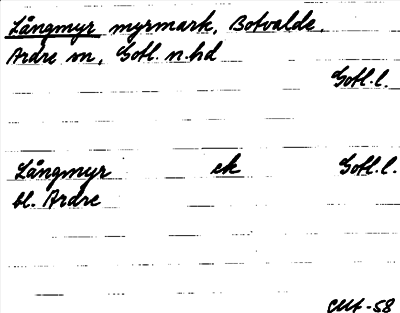 Långmyr myrmark, Botvalde,
Ardre sn, Gotl. n. hd
Gotl. l.
Långmyr ek Gotl. l.
bl. Ardre
CMt -58